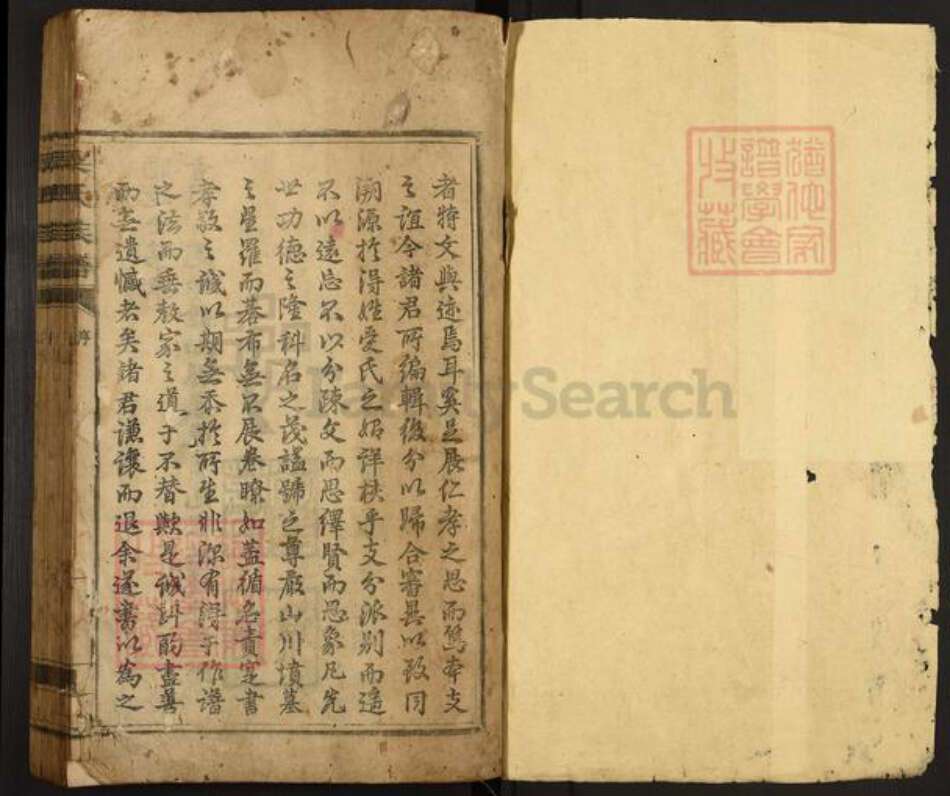 猶他家
譜學會
收藏
者特文與迹焉耳奚足展仁孝之思而篤本支
之誼今諸君所編輯復分以歸合審異以致同
溯源於得姓受氏之始詳核乎支分派別而遥
不以遠忘不以分陳父而思繹賢而思象凡先
世功德之隆科名之茂謚號之尊嚴山川墳墓
之星羅而碁布無不展卷瞭如蓋循名責寔書
孝敬之誠以期無忝於所生非深有得于作譜
之法而垂教家之道于不替歟是誠斟酌盡善
而無遺憾者矣諸君謙讓而退余遂書以為之
氏族譜
Search